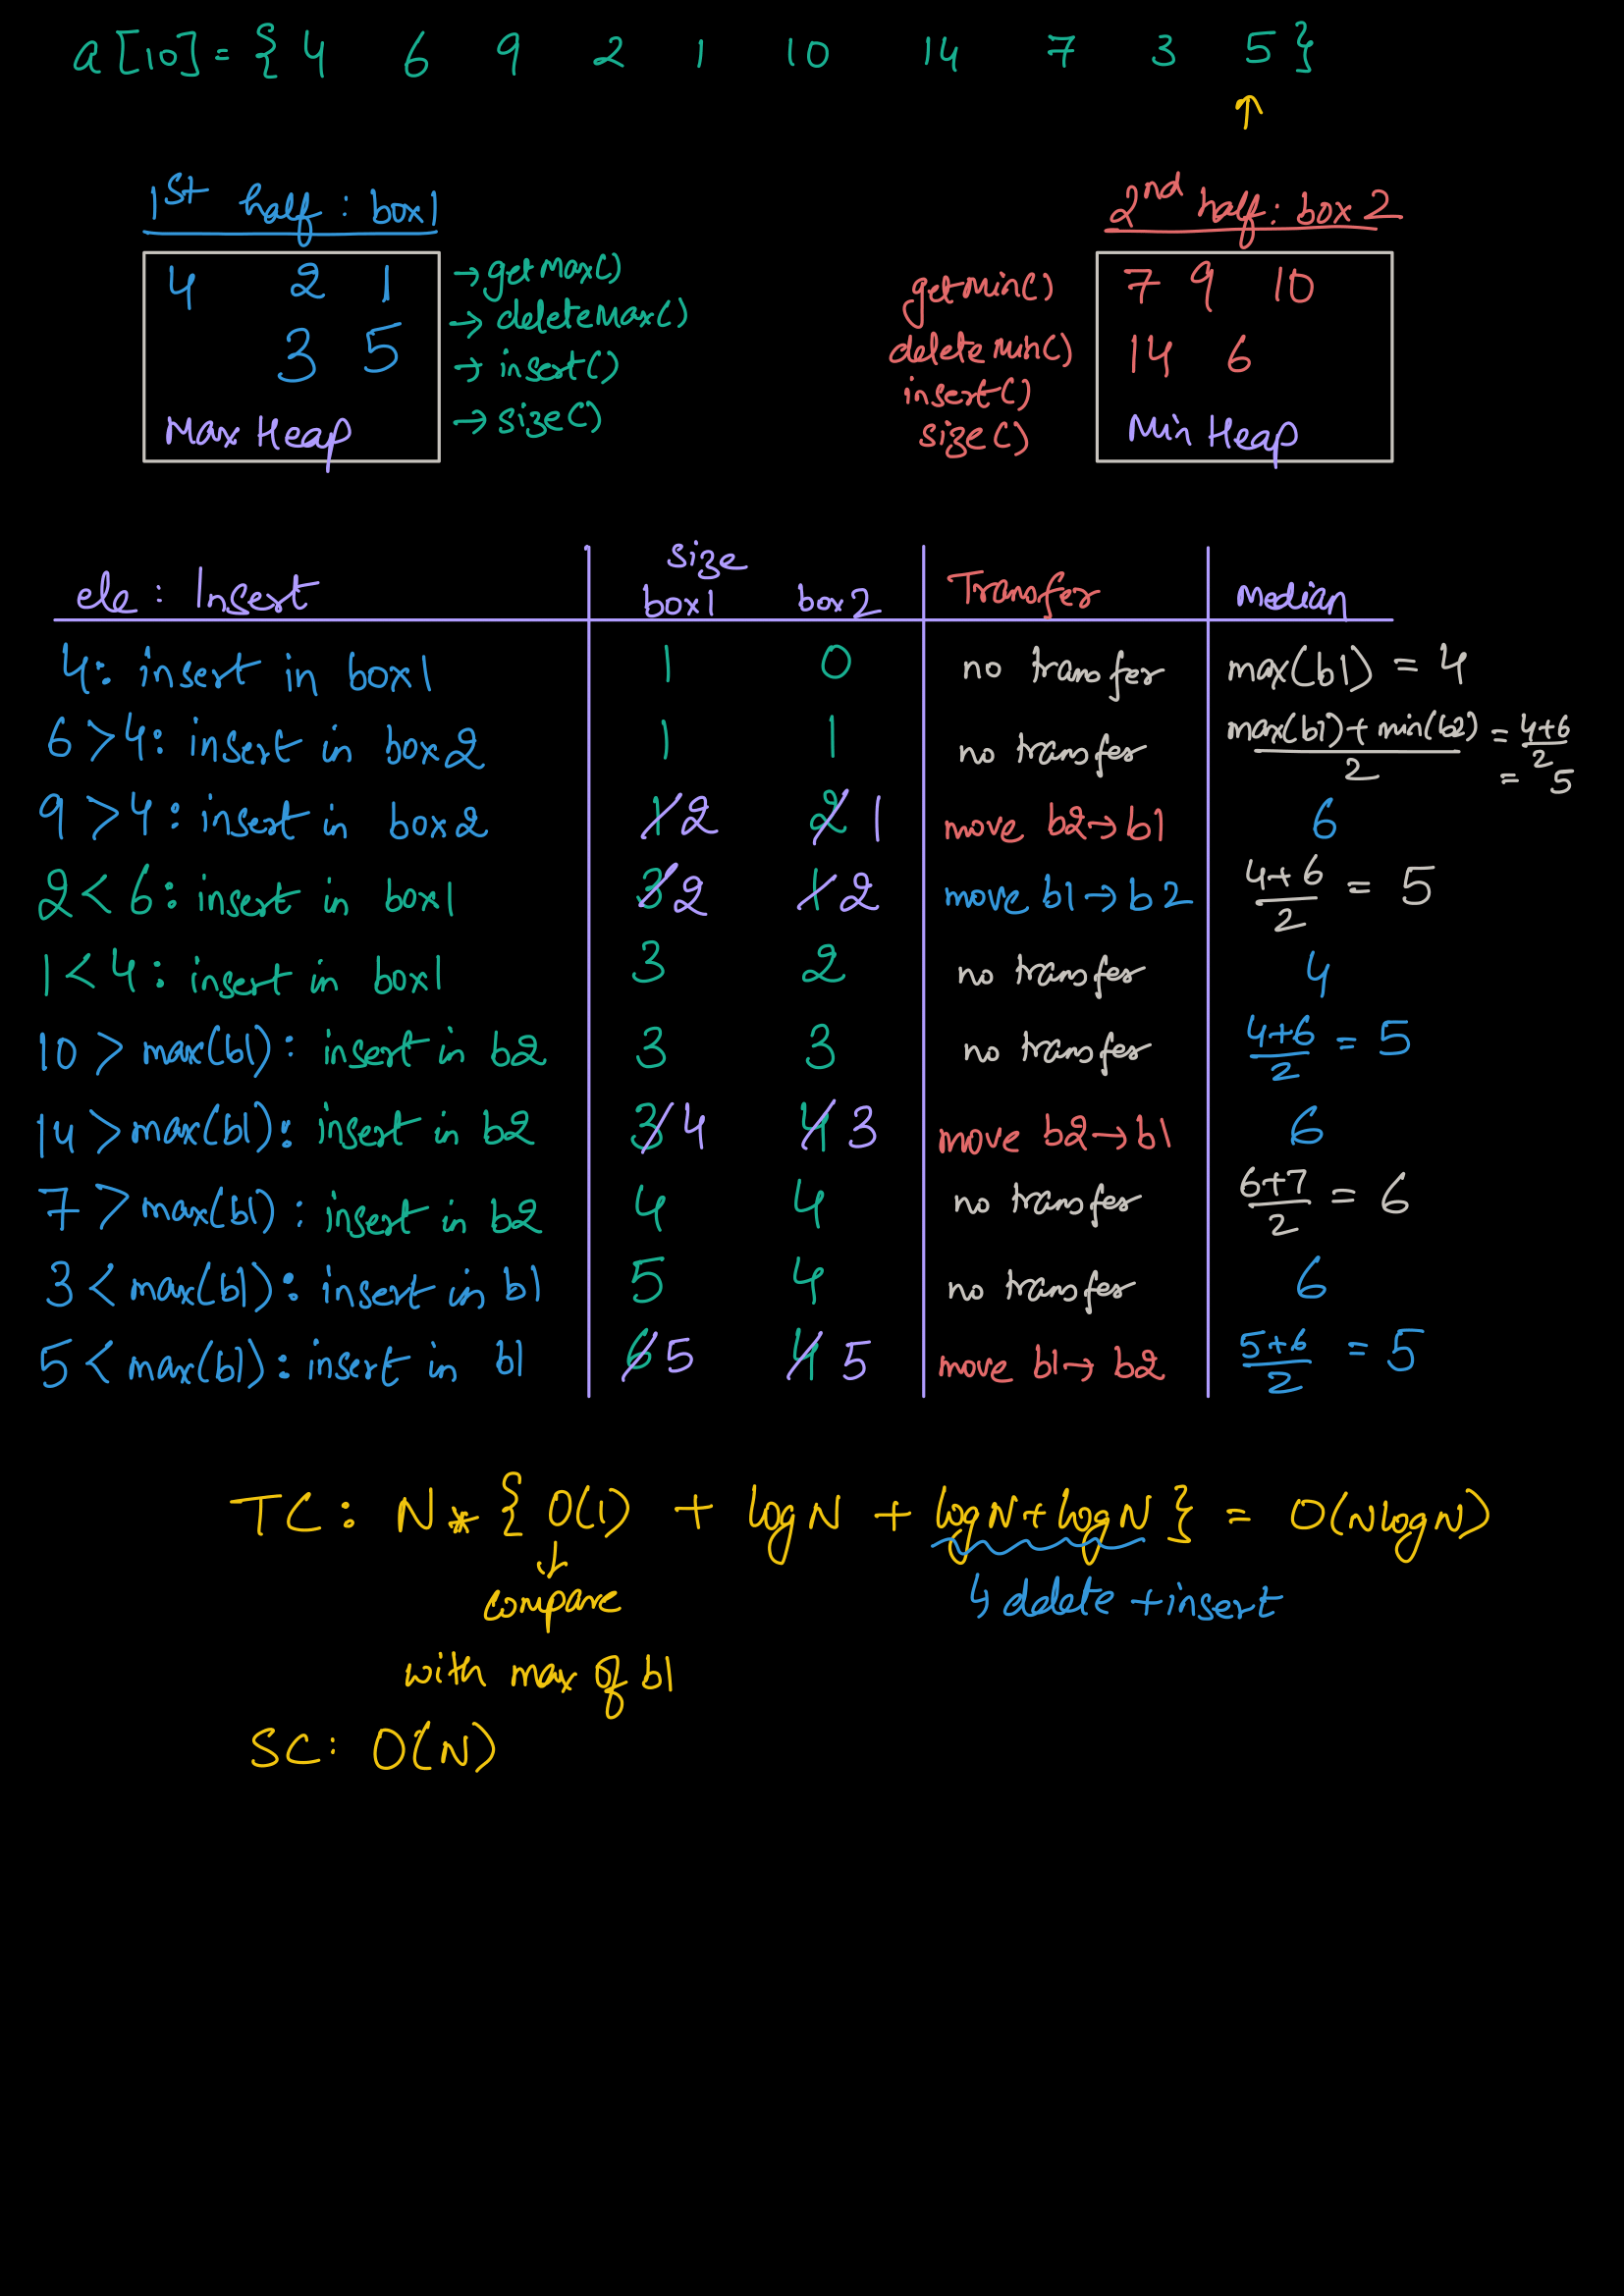 a[10] = { 4 6 9 2 1 10 14 7 3 5 }
↑
1st half : box1
4 2 1
3 5
Max Heap
→ getMax()
→ deleteMax()
→ insert()
→ size()
2nd half : box 2
getMin()
deleteMin()
insert()
size()
7 9 10
14 6
Min Heap
size
ele : Insert box1 box2 Transfer Median
4: insert in box1 1 0 no transfer max(b1) = 4
6 > 4: insert in box2 1 1 no transfer max(b1) + min(b2) / 2 = 4+6 / 2 = 5
9 > 4: insert in box2 1 2 2 1 move b2 → b1 6
2 < 6: insert in box1 3 2 1 2 move b1 → b2 4+6 / 2 = 5
1 < 4: insert in box1 3 2 no transfer 4
10 > max(b1): insert in b2 3 3 no transfer 4+6 / 2 = 5
14 > max(b1): insert in b2 3 4 4 3 move b2 → b1 6
7 > max(b1): insert in b2 4 4 no transfer 6+7 / 2 = 6
3 < max(b1): insert in b1 5 4 no transfer 6
5 < max(b1): insert in b1 6 5 4 5 move b1 → b2 5+6 / 2 = 5
TC: N * { O(1) + logN + logN + logN } = O(NlogN)
↳ delete + insert
compare
with max of b1
SC: O(N)